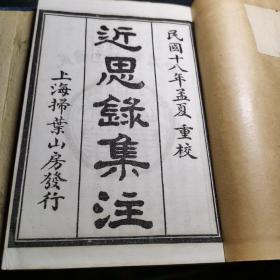 民國十八年孟夏重校
近思錄集注
上海掃葉山房發行